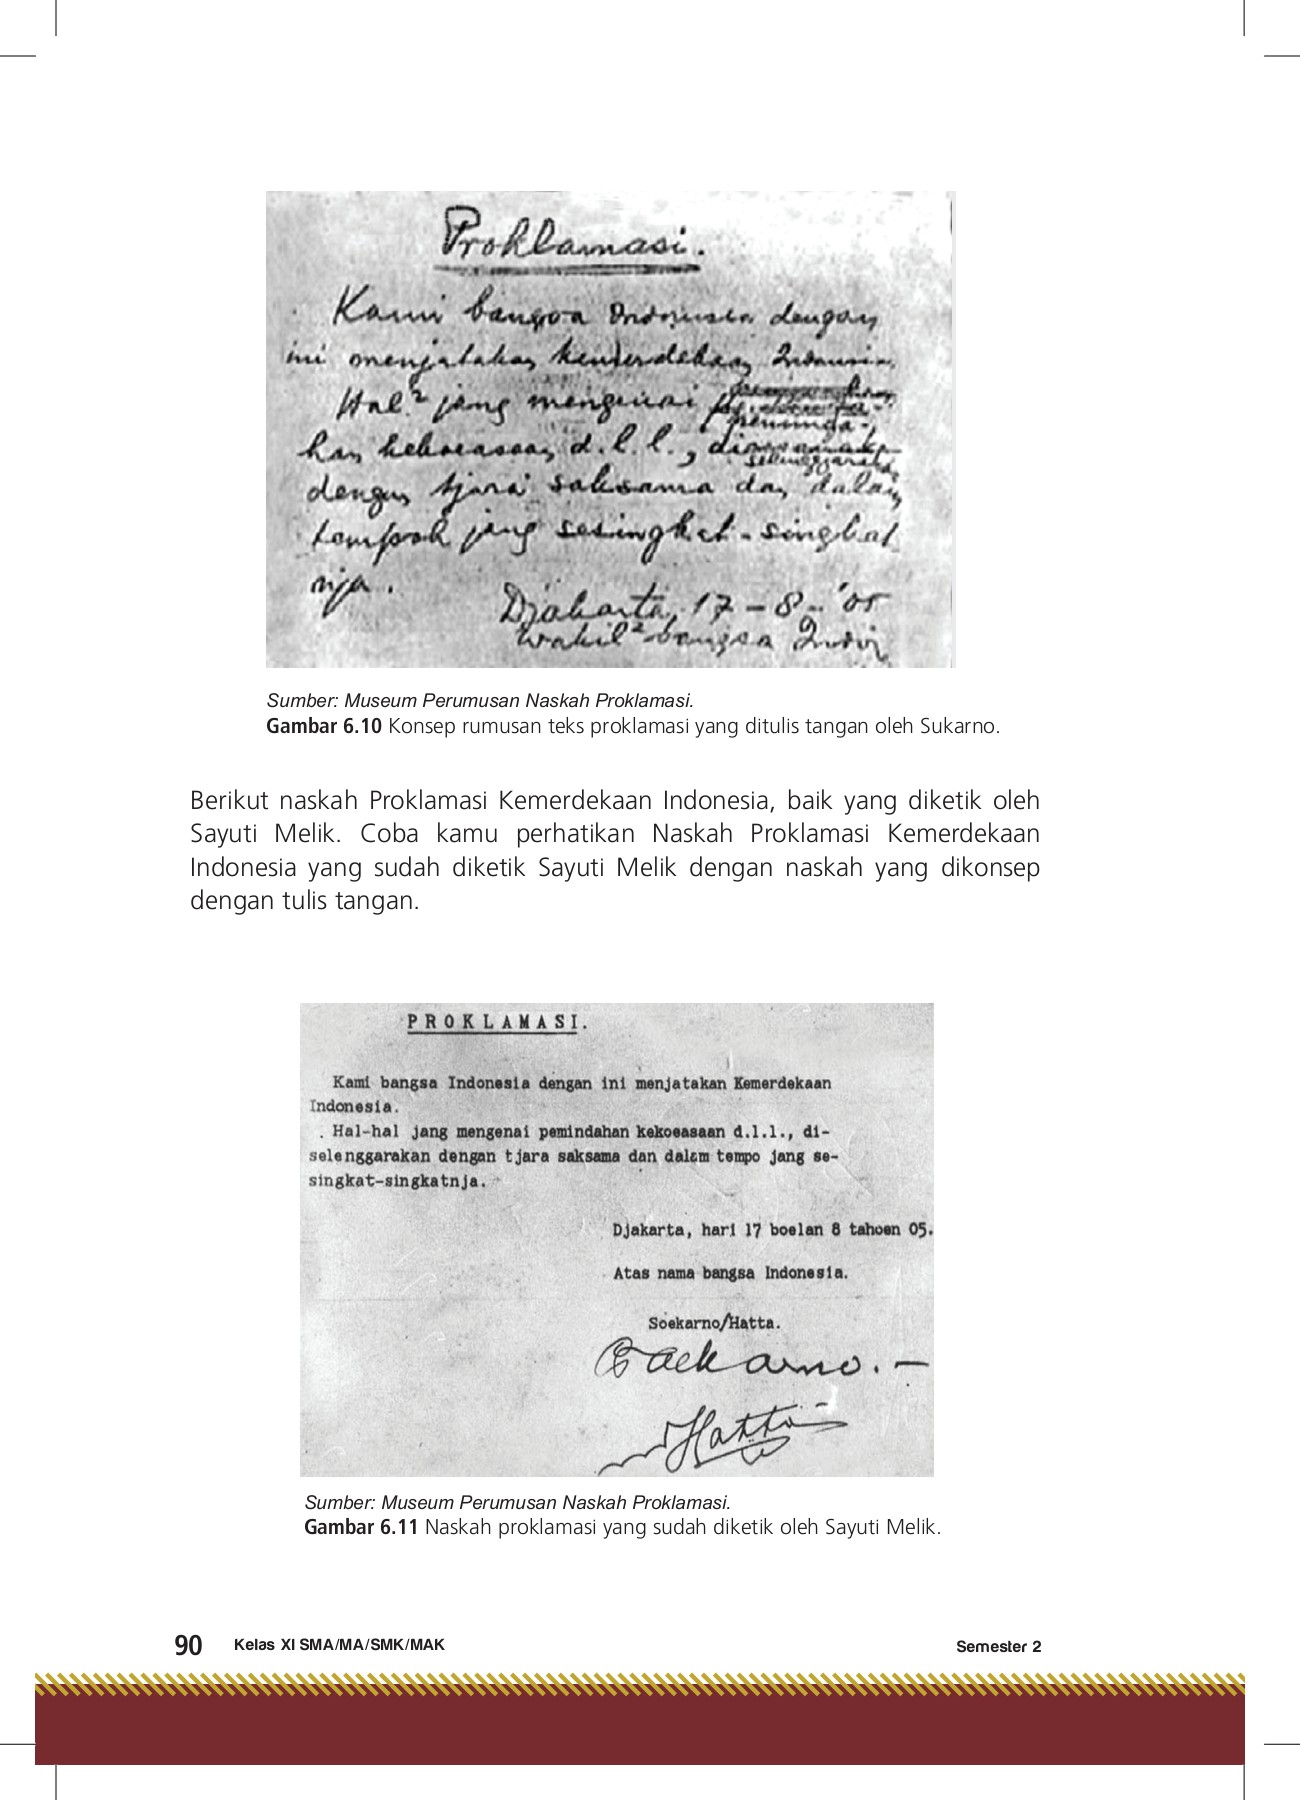 Proklamasi.
Kami bangsa Indonesia dengan
ini menjatakan kemerdekaan Indonesia.
Hal² jang mengenai
peminda-
han kekoeasaan d.l.l.,
diselenggarakan
dengan tjara saksama dan dalam
tempoh jang sesingkat-singkat
nja.
Djakarta, 17 - 8 - '05
Wakil² bangsa Indon
Sumber: Museum Perumusan Naskah Proklamasi.
Gambar 6.10 Konsep rumusan teks proklamasi yang ditulis tangan oleh Sukarno.
Berikut naskah Proklamasi Kemerdekaan Indonesia, baik yang diketik oleh
Sayuti Melik. Coba kamu perhatikan Naskah Proklamasi Kemerdekaan
Indonesia yang sudah diketik Sayuti Melik dengan naskah yang dikonsep
dengan tulis tangan.
PROKLAMASI.
Kami bangsa Indonesia dengan ini menjatakan Kemerdekaan
Indonesia.
Hal-hal jang mengenai pemindahan kekoeasaan d.l.l., di-
selenggarakan dengan tjara saksama dan dalam tempo jang se-
singkat-singkatnja.
Djakarta, hari 17 boelan 8 tahoen 05.
Atas nama bangsa Indonesia.
Soekarno/Hatta.
Soekarno.-
Hatta
Sumber: Museum Perumusan Naskah Proklamasi.
Gambar 6.11 Naskah proklamasi yang sudah diketik oleh Sayuti Melik.
90 Kelas XI SMA/MA/SMK/MAK Semester 2